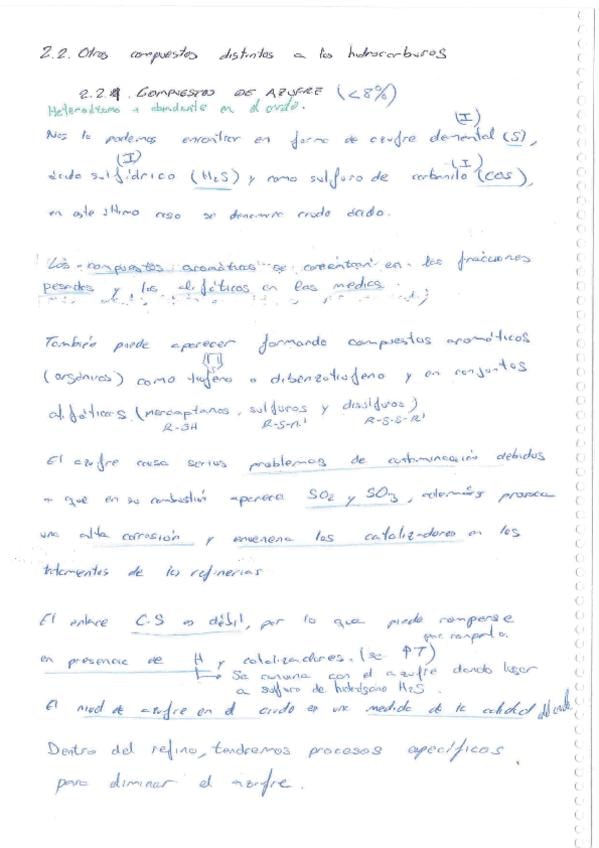 2.2. Otros compuestos distintos a los hidrocarburos
2.2.1. COMPUESTOS DE AZUFRE (<8%)
Heteroátomo + abundante en el crudo.
(I)
Nos lo podemos encontrar en forma de azufre elemental (S),
(I) (I)
ácido sulfídrico (H2S) y como sulfuro de carbonilo (COS),
en este último caso se denomina crudo ácido.
Los compuestos aromáticos se concentran en las fracciones
pesadas y los alifáticos en las medias.
También puede aparecer formando compuestos aromáticos
(orgánicos) como tiofeno o dibenzotiofeno y en conjuntos
alifáticos (mercaptanos, sulfuros y disulfuros)
R-SH R-S-R' R-S-S-R'
El azufre causa serios problemas de contaminación debidos
a que en su combustión aparece SO2 y SO3, además provoca
una alta corrosión y envenena los catalizadores en los
tratamientos de las refinerías
El enlace C-S es débil, por lo que puede romperse
en presencia de H y catalizadores. (se ↑T)
Se combina con el azufre dando lugar
a sulfuro de hidrógeno H2S.
El nivel de azufre en el crudo es una medida de la calidad del crudo
Dentro del refino, tendremos procesos específicos
para eliminar el azufre.